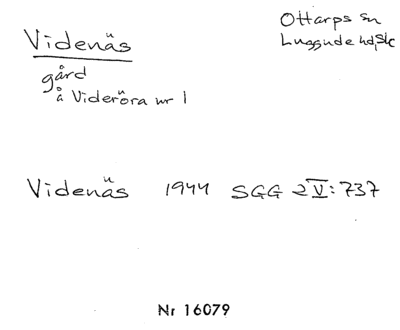 Videnäs
Ottarps sn
Luggude hd, Sk
gård
å Videröra nr 1
Videnäs 1944 SGG 2 V: 737
Nr 16079